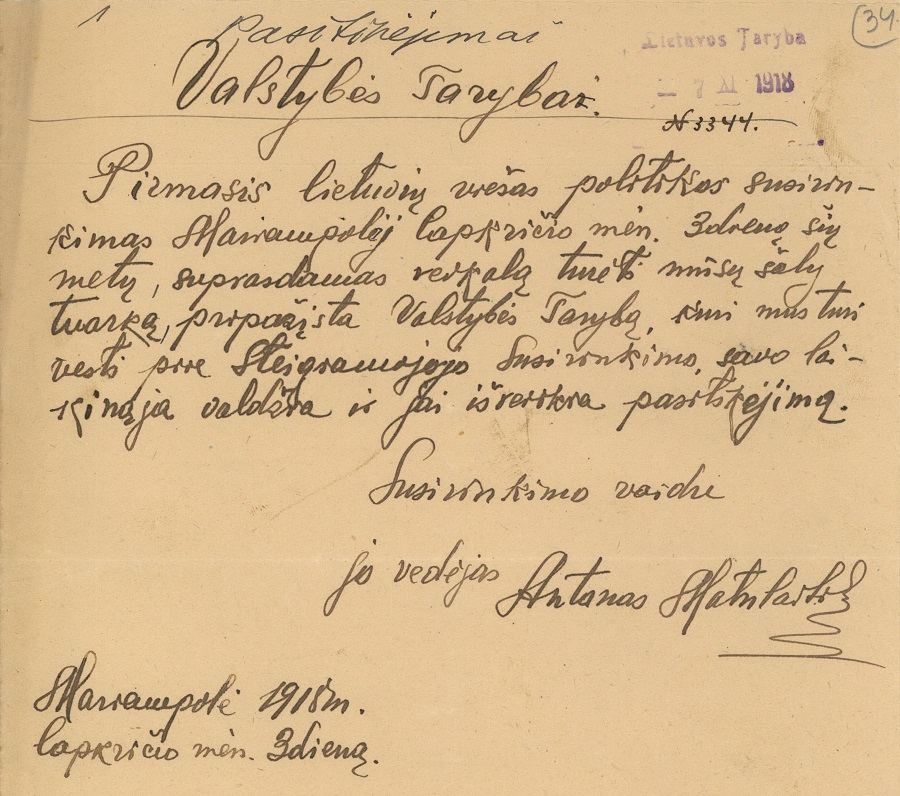 1
34
Pasitikėjimai
Lietuvos Taryba
Valstybės Tarybai.
— 7 XI 1918
N 3344.
Pirmasis lietuvių viešas politikos susirin-
kimas Mariampolėj lapkričio mėn. 3 dieną šių
metų, suprasdamas reikalą turėti mūsų šaly
tvarką, pripažįsta Valstybės Tarybą, kuri mus turi
vesti prie Steigiamojojo Susirinkimo, savo lai-
kinąja valdžia ir jai išreiškia pasitikėjimą.
Susirinkimo vardu
jo vedėjas Antanas Matulaitis
Mariampolė 1918 m.
lapkričio mėn. 3 dieną.